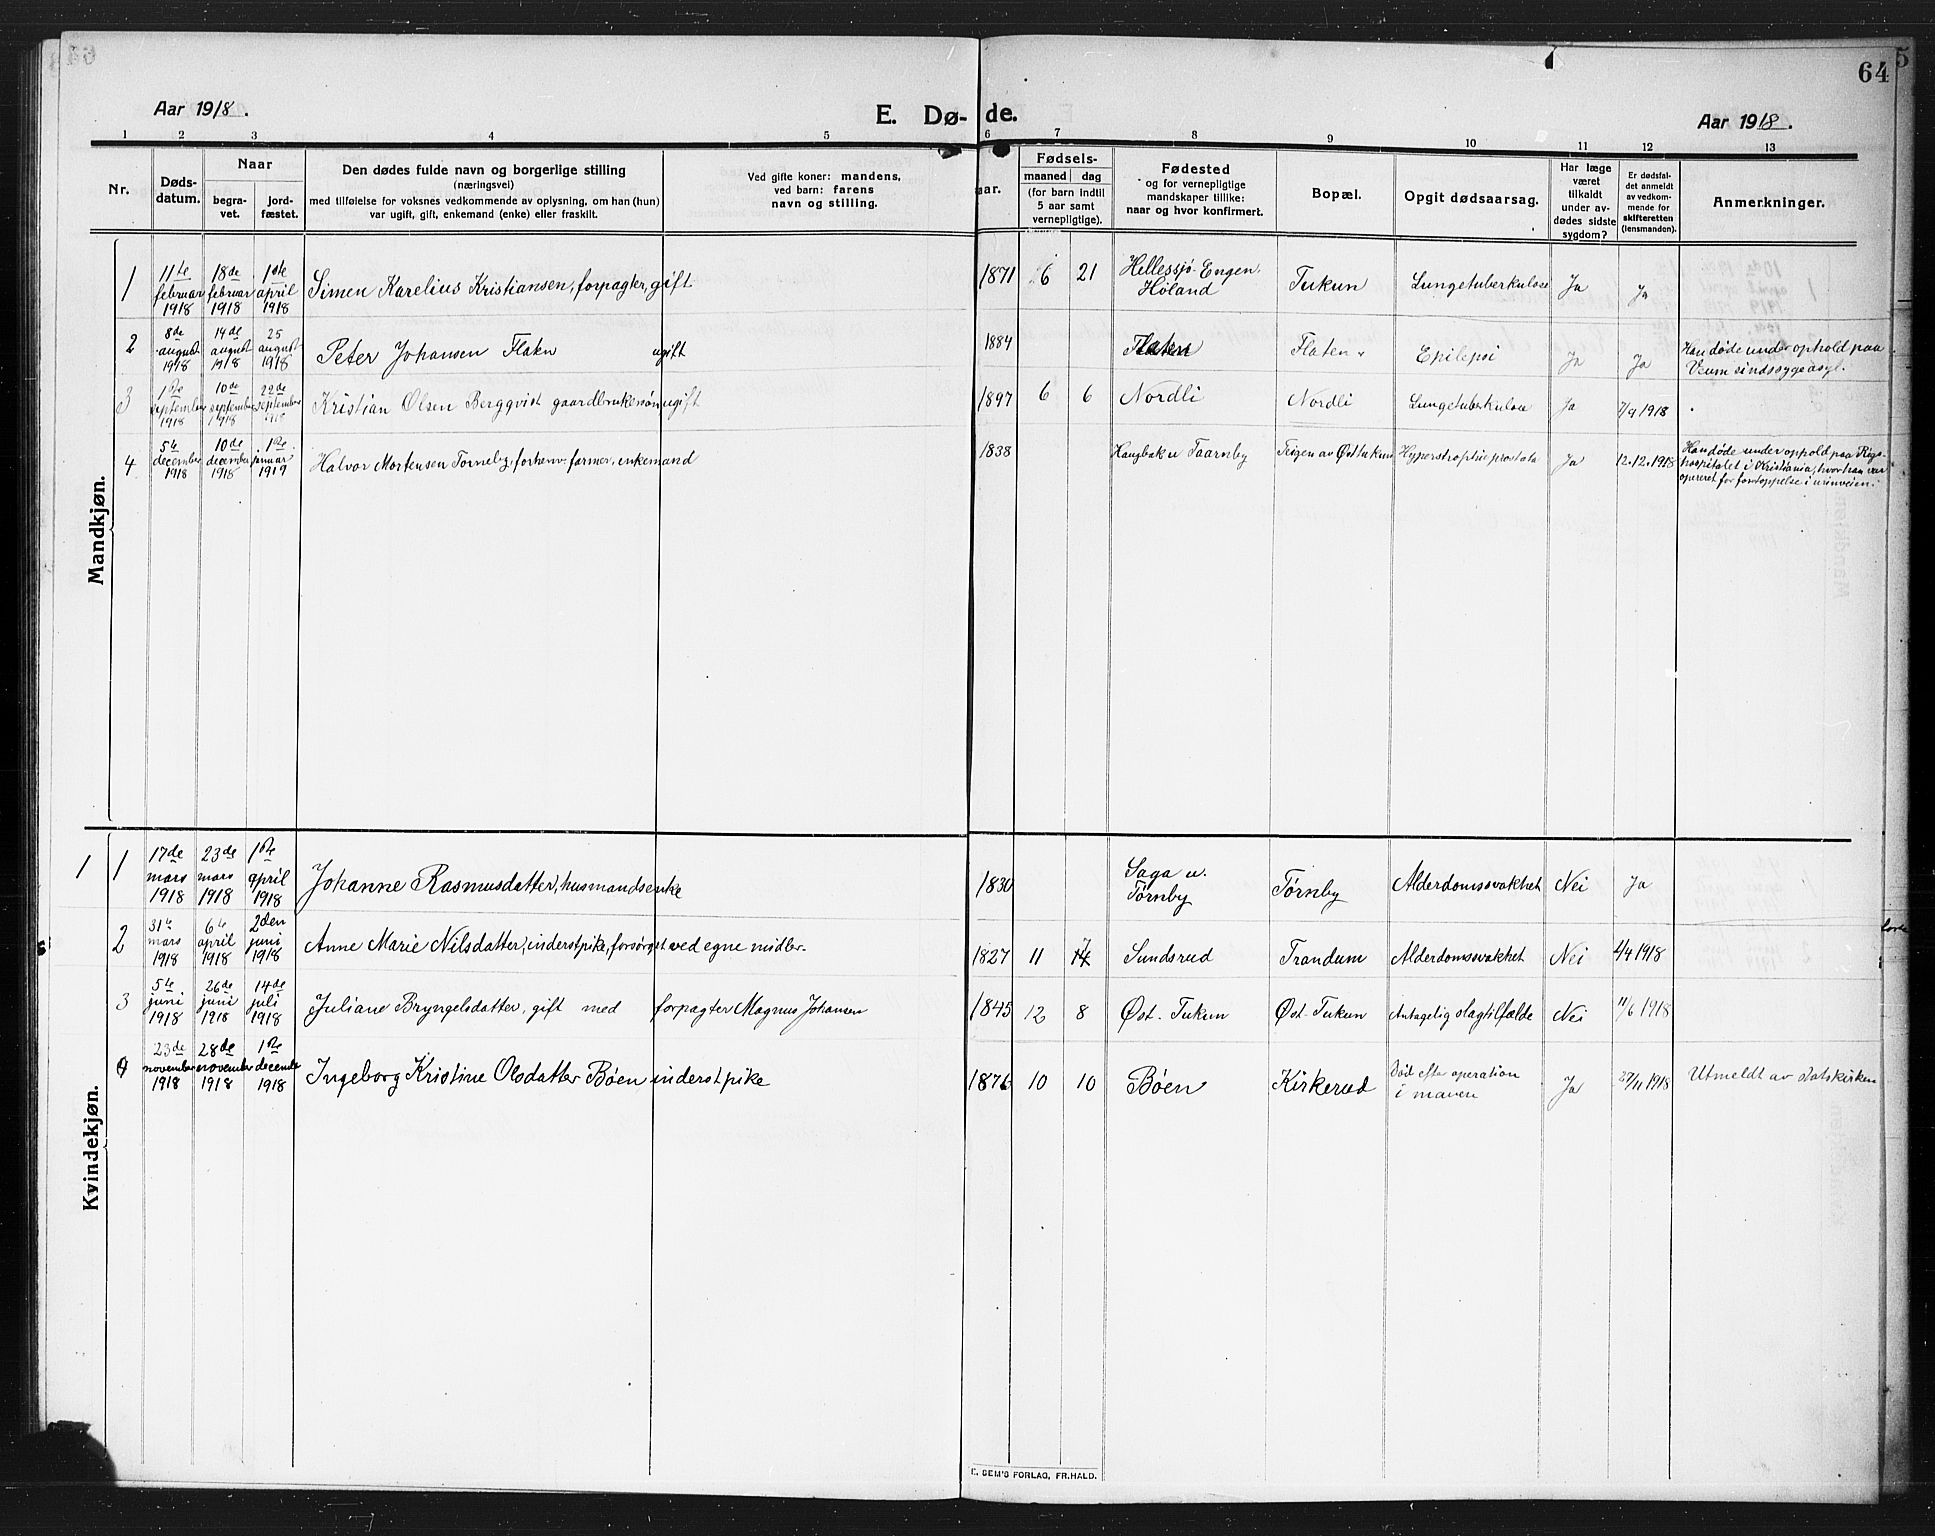 64
Aar 1918.
E. Dø- de.
Aar 1918.
1 2 3 4 5 6 7 8 9 10 11 12 13
Nr.
Døds-
datum.
Naar
begra-
vet.
jord-
fæstet.
Den dødes fulde navn og borgerlige stilling
(næringsvei)
med tilføielse for voksnes vedkommende av oplysning, om han (hun)
var ugift, gift, enkemand (enke) eller fraskilt.
Ved gifte koner: mandens,
ved barn: farens
navn og stilling.
aar.
Fødsels-
maaned dag
(for barn indtil
5 aar samt
vernepligtige).
Fødested
og for vernepligtige
mandskaper tillike:
naar og hvor konfirmert.
Bopæl.
Opgit dødsaarsag.
Har læge
været
tilkaldt
under av-
dødes sidste
sygdom?
Er dødsfal-
det anmeldt
av vedkom-
mende for
skifteretten
(lensmanden).
Anmerkninger.
Mandkjøn.
1 11te februar 1918 18de februar 1918 1ste april 1918 Simen Karelius Kristiansen, forpagter, gift 1871 6 21 Hellessjø-Engen, Høland Tukun Lungetuberkulose Ja Ja
2 8de august 1918 14de august 1918 25 august 1918 Peter Johansen Flaten ugift 1884 Flaten Flaten Epilepsi Ja Ja Han døde under ophold paa
Veum sindssygeasyl.
3 1ste september 1918 10de september 1918 22de september 1918 Kristian Olsen Bergqvist gaardbrukersøn ugift 1897 6 6 Nordli Nordli Lungetuberkulose Ja 7/9 1918
4 5te december 1918 10de december 1918 1ste januar 1919 Halvor Mortensen Torneby, forhenv. farmer, enkemand 1838 Haugbak u Taarnby Teigen av Østtukun Hyperstroptie prostata Ja 12.12.1918 Han døde under oppold paa Rigs-
hospitalet i Kristiania, hvor han var
opereret for forstoppelse i urinveien.
Kvindekjøn.
1 1 17de mars 1918 23de mars 1918 1ste april 1918 Johanne Rasmusdatter, husmandsenke 1830 Saga u. Tørnby Tørnby Alderdomssvakhet Nei Ja
2 31te mars 1918 6te april 1918 2den juni 1918 Anne Marie Nilsdatter, inderstpike, forsørget ved egne midler 1827 11 7 Sundsrud Trandum Alderdomssvakhet Nei 4/4 1918
3 5te juni 1918 26de juni 1918 14de juli 1918 Juliane Bryngelsdatter, gift med forpagter Magnus Johansen 1845 12 8 Øst-Tukun Øst-Tukun Antagelig slagtilfælde Nei 11/6 1918
4 23de november 1918 28de november 1918 1ste december 1918 Ingeborg Kristine Olsdatter Bøen, inderstpike 1876 10 10 Bøen Kirkerud Død efter operation
i maven Ja 27/11 1918 Utmeldt av statskirken
E. SEM'S FORLAG, FR.HALD.